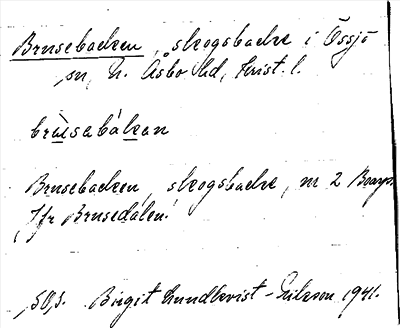 Brusebacken, skogsbacke i Össjö
sn, N. Åsbo hd, Krist. l.
brùsabákan
Brusebacken, skogsbacke, nr 2 Boarp.
Jfr Brusedalen!
50,s. Birgit Lundkvist-Erikson 1941.